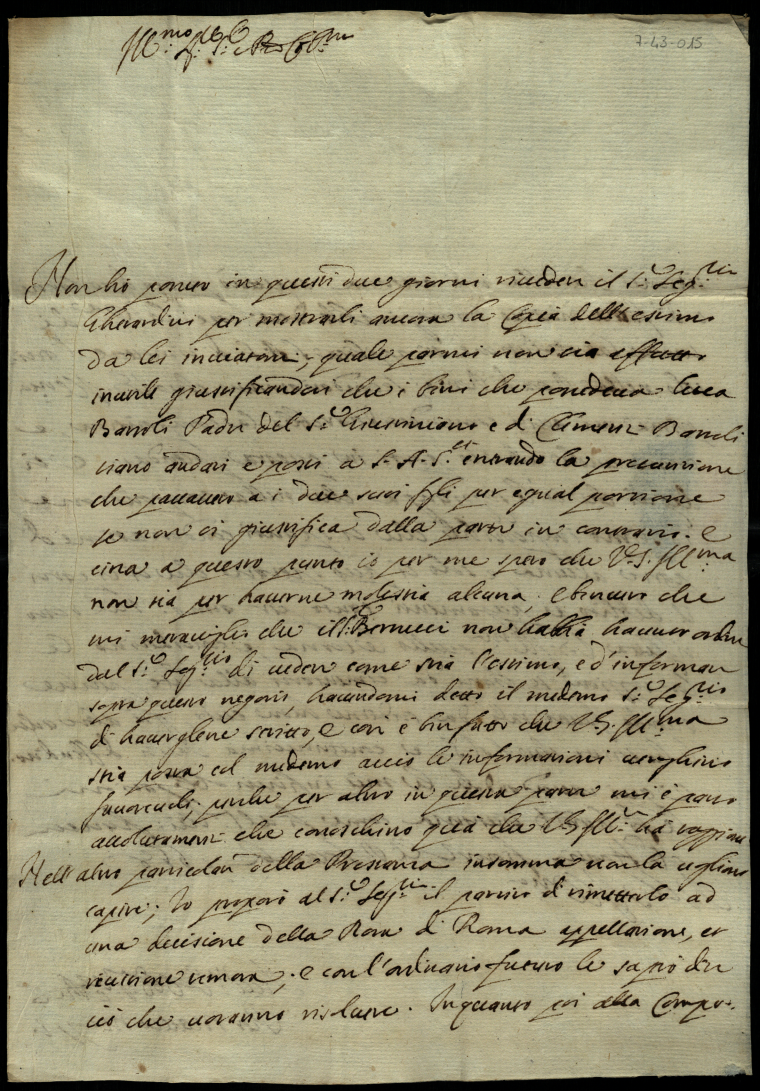 7-43-015
Ill.mo Sig.r Sig.r e Pron Col.mo
Non hò potuto in questi due giorni riveder il S.r Seg.rio
Gherardini per mostrarli ancora la Copia dell'estimo
da lei inviatami, quale parmi non sia affatto
inutile giustificandosi che i beni che possedeva Luca
Bartoli Padre del S.r Giustiniano e di Clemente Bartoli
siano andati e posti a S. A. S. et entrando la presuntione
che passassero a i due suoi ffli per egual portione
se non si giustifica dalla parte in contrario. e
circa a questo punto io per me spero che V.S. Ill.ma
non sia per haverne molestia alcuna; e ben vero che
mi meraviglio che il S.r Bernucci non habbia havuto ordine
dal S.r Seg.rio di veder come stia l'estimo, e d'informar
sopra questo negotio, havendomi detto il medemo S.r Seg.rio
di haverglene scritto, e così è ben fatto che V.S. Ill.ma
stia col medemo acciò le informationi venghino
favorevoli, perche per altro in questa parte mi è parso
assolutamente che conoschino quà che V.S. Ill.ma hà raggione
Nell'altro particolar della Prestanza insomma non la vogliono
capire; Io proposi al S.r Seg.rio il partito di rimetterlo ad
una decisione della Rota di Roma appellatione, et
recusatione remota, e con l'ordinario futuro le saprò dire
ciò che voranno risolvere. In quanto poi alla Compo-